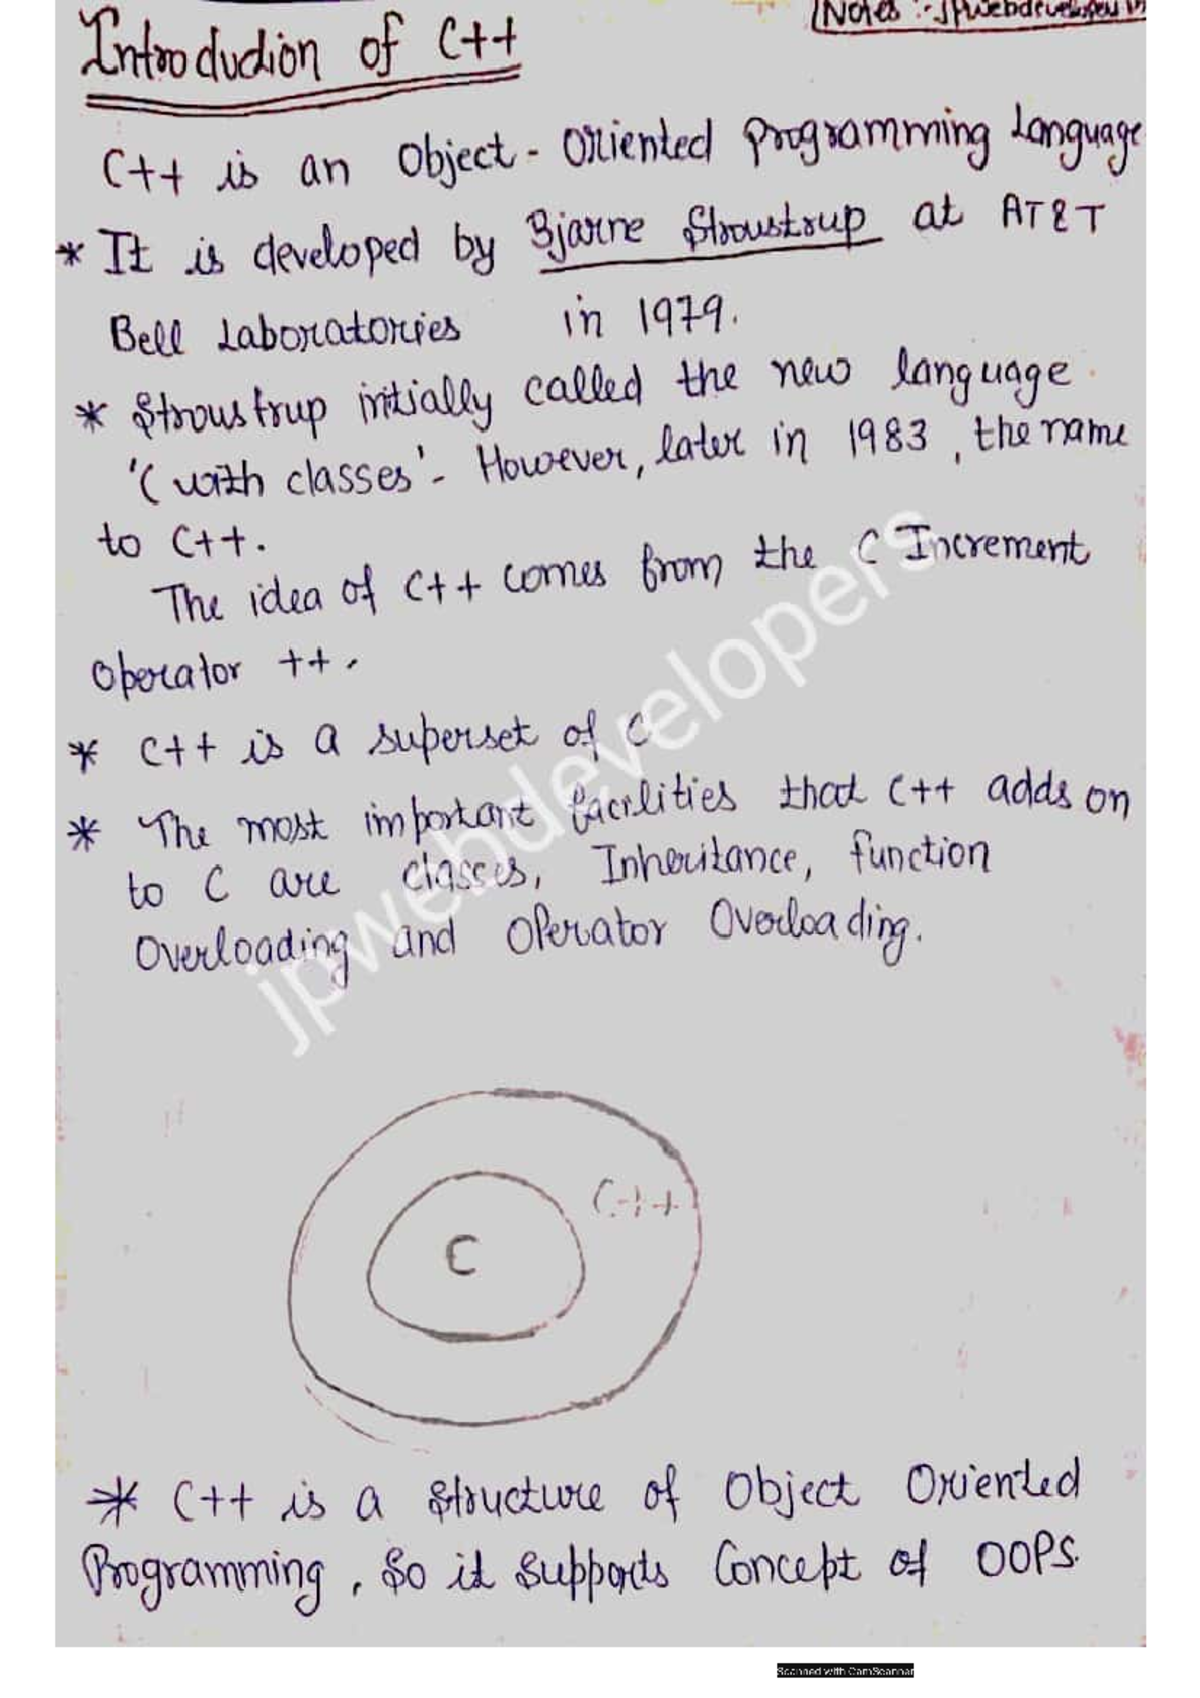 Notes :- jpwebdevelopers
Introduction of C++
C++ is an Object - Oriented Programming Language
* It is developed by Bjarne Stroustrup at AT&T
Bell Laboratories in 1979.
* Stroustrup initially called the new language
'C with classes'- However, later in 1983, the name
to C++.
The idea of C++ comes from the C Increment
Operator ++.
* C++ is a superset of C
* The most important facilities that C++ adds on
to C are classes, Inheritance, function
Overloading and Operator Overloading.
jpwebdevelopers
C++
C
* C++ is a structure of Object Oriented
Programming, So it Supports Concept of OOPS.
Scanned with CamScanner